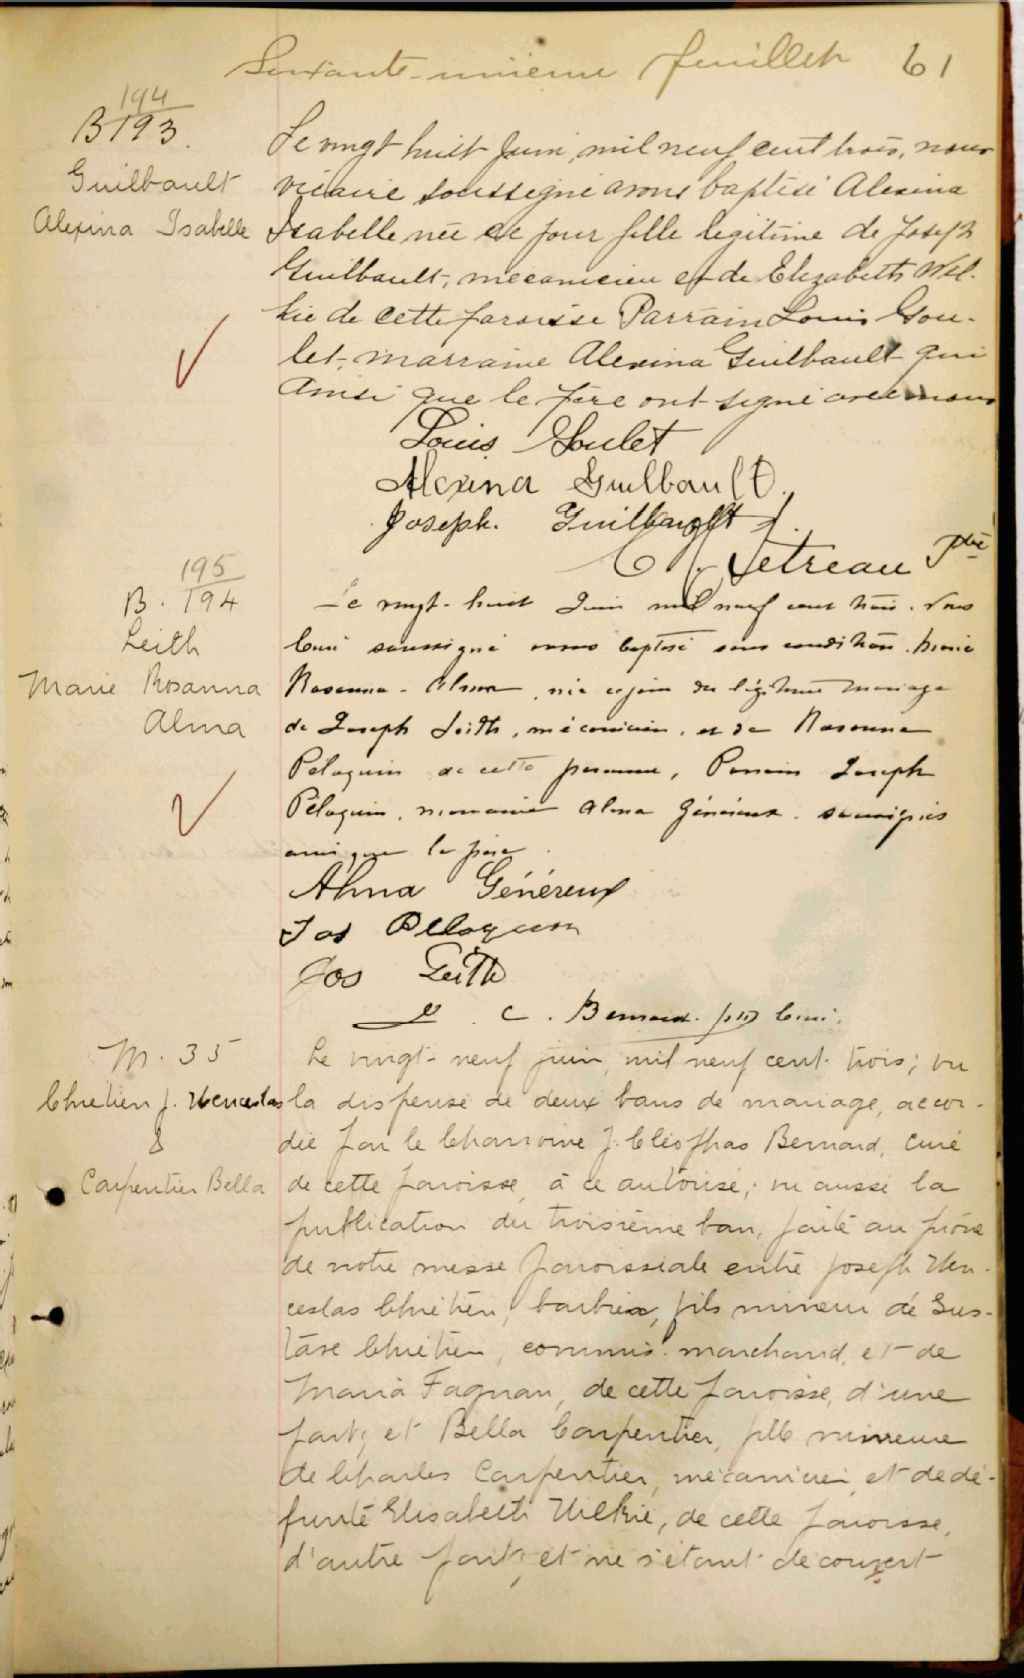 Soixante-unieme feuillet 61
194
B 193.
Guilbault
Alexina Isabelle
Le vingt huit Juin, mil neuf cent trois, nous
vicaire soussigné avons baptisé Alexina
Isabelle née ce jour fille légitime de Joseph
Guilbault, mécanicien et de Elizabeth Wil-
kie de cette paroisse Parrain Louis Gou-
let, marraine Alexina Guilbault qui
ainsi que le père ont signé avec nous
Louis Goulet
Alexina Guilbault.
Joseph. Guilbault
Letreau Ptre
195
B. 194
Leith
Marie Rosanna
Alma
Le vingt-huit Juin mil neuf cent trois. Nous
Curé soussigné avons baptisé sous condition Marie
Rosanna-Alma, née ce jour du légitime mariage
de Joseph Leith, mécanicien, et de Rosanna
Péloquin de cette paroisse, Parrain Joseph
Péloquin, marraine Alma Généreux. soussignés
ainsi que le père.
Alma Généreux
Jos Peloquin
Jos Leith
J. C. Bernard. ptre Curé.
M. 35
Chretien J. Wenceslas
&
Carpentier Bella
Le vingt-neuf juin, mil neuf cent trois; vu
la dispense de deux bans de mariage, accor-
dée par le Chanoine J. Cléophas Bernard, curé
de cette paroisse, à ce autorisé; vu aussi la
publication du troisième ban, faite au prône
de notre messe paroissiale entre Joseph Wen-
ceslas Chrétien, barbier, fils mineur de Gus-
tave Chrétien, commis-marchand, et de
Maria Fagnan, de cette paroisse, d'une
part; et Bella Carpentier, fille mineure
de Charles Carpentier, mécanicien, et de dé-
funte Elisabeth Wilkie, de cette paroisse,
d'autre part; et ne s'étant découvert